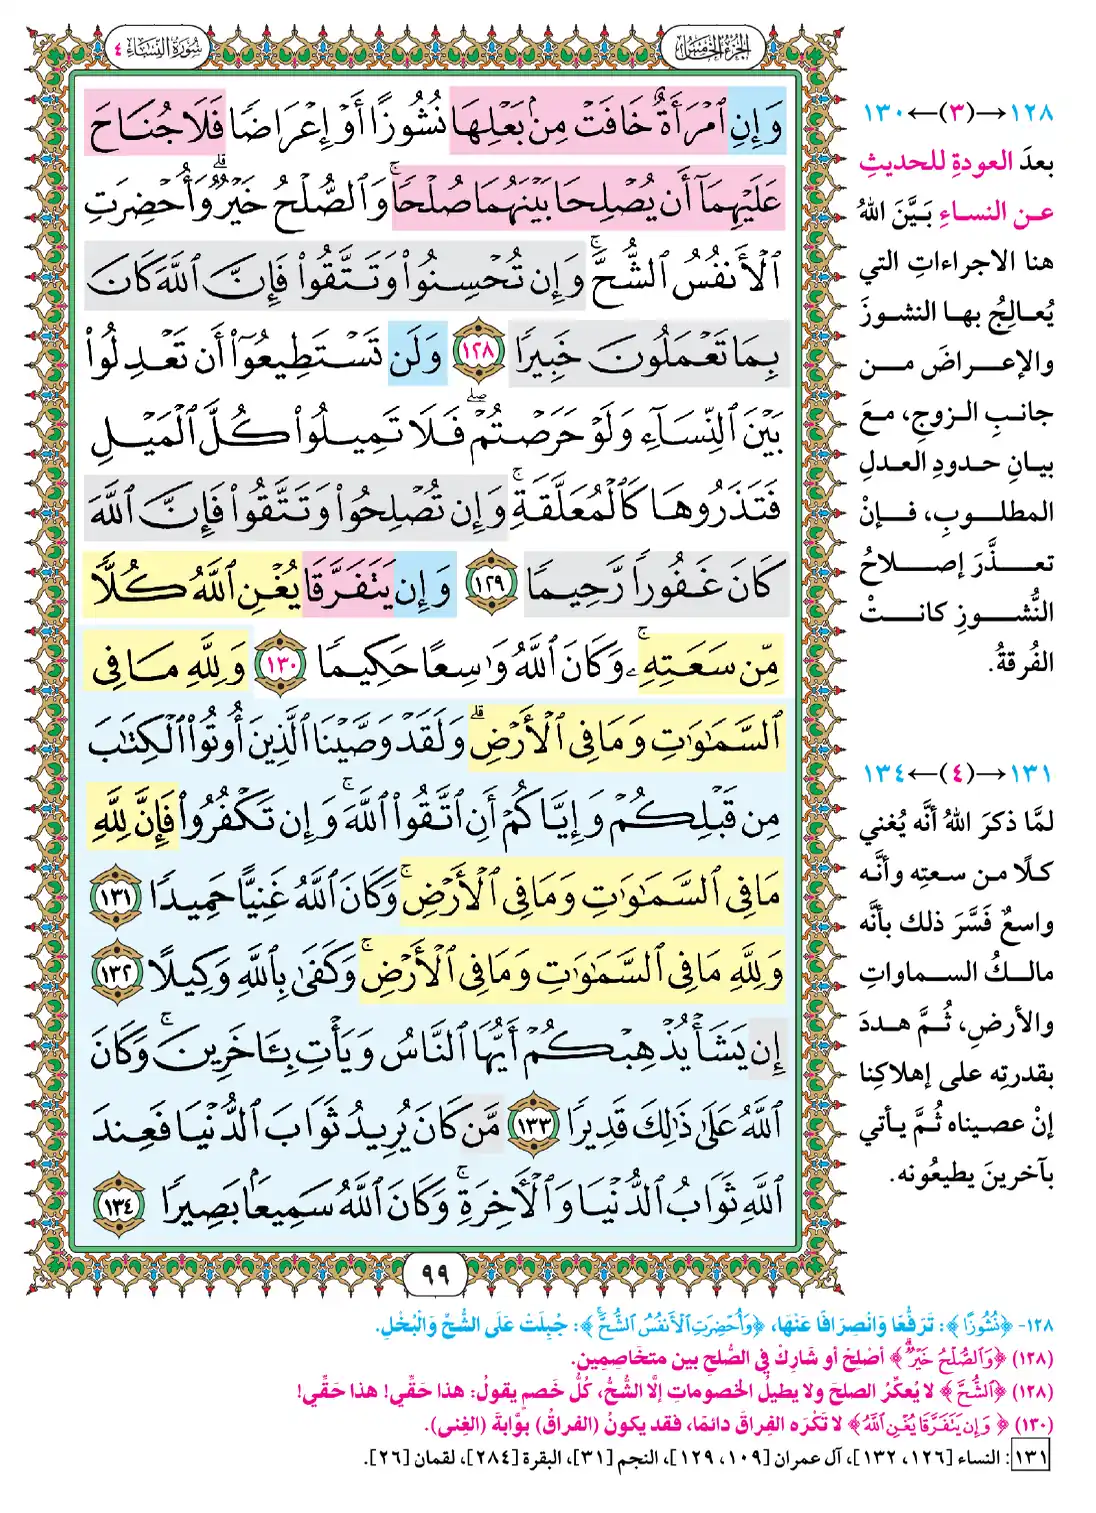 الجزء الخامس
سورة النساء ٤
وَإِنِ ٱمْرَأَةٌ خَافَتْ مِنۢ بَعْلِهَا نُشُوزًا أَوْ إِعْرَاضًا فَلَا جُنَاحَ
عَلَيْهِمَآ أَن يُصْلِحَا بَيْنَهُمَا صُلْحًا ۚ وَٱلصُّلْحُ خَيْرٌ ۗ وَأُحْضِرَتِ
ٱلْأَنفُسُ ٱلشُّحَّ ۚ وَإِن تُحْسِنُوا۟ وَتَتَّقُوا۟ فَإِنَّ ٱللَّهَ كَانَ
بِمَا تَعْمَلُونَ خَبِيرًا ١٢٨ وَلَن تَسْتَطِيعُوٓا۟ أَن تَعْدِلُوا۟
بَيْنَ ٱلنِّسَآءِ وَلَوْ حَرَصْتُمْ ۖ فَلَا تَمِيلُوا۟ كُلَّ ٱلْمَيْلِ
فَتَذَرُوهَا كَٱلْمُعَلَّقَةِ ۚ وَإِن تُصْلِحُوا۟ وَتَتَّقُوا۟ فَإِنَّ ٱللَّهَ
كَانَ غَفُورًا رَّحِيمًا ١٢٩ وَإِن يَتَفَرَّقَا يُغْنِ ٱللَّهُ كُلًّا
مِّن سَعَتِهِۦ ۚ وَكَانَ ٱللَّهُ وَٰسِعًا حَكِيمًا ١٣٠ وَلِلَّهِ مَا فِى
ٱلسَّمَٰوَٰتِ وَمَا فِى ٱلْأَرْضِ ۗ وَلَقَدْ وَصَّيْنَا ٱلَّذِينَ أُوتُوا۟ ٱلْكِتَٰبَ
مِن قَبْلِكُمْ وَإِيَّاكُمْ أَنِ ٱتَّقُوا۟ ٱللَّهَ ۚ وَإِن تَكْفُرُوا۟ فَإِنَّ لِلَّهِ
مَا فِى ٱلسَّمَٰوَٰتِ وَمَا فِى ٱلْأَرْضِ ۚ وَكَانَ ٱللَّهُ غَنِيًّا حَمِيدًا ١٣١
وَلِلَّهِ مَا فِى ٱلسَّمَٰوَٰتِ وَمَا فِى ٱلْأَرْضِ ۚ وَكَفَىٰ بِٱللَّهِ وَكِيلًا ١٣٢
إِن يَشَأْ يُذْهِبْكُمْ أَيُّهَا ٱلنَّاسُ وَيَأْتِ بِـَٔاخَرِينَ ۚ وَكَانَ
ٱللَّهُ عَلَىٰ ذَٰلِكَ قَدِيرًا ١٣٣ مَّن كَانَ يُرِيدُ ثَوَابَ ٱلدُّنْيَا فَعِندَ
ٱللَّهِ ثَوَابُ ٱلدُّنْيَا وَٱلْـَٔاخِرَةِ ۚ وَكَانَ ٱللَّهُ سَمِيعًۢا بَصِيرًا ١٣٤
٩٩
١٢٨→(٣)←١٣٠
بعدَ العودةِ للحديثِ
عن النساءِ بَيَّنَ اللهُ
هنا الاجراءاتِ التي
يُعالِجُ بها النشوزَ
والإعراضَ من
جانبِ الزوجِ، معَ
بيانِ حدودِ العدلِ
المطلوبِ، فإنْ
تعذَّرَ إصلاحُ
النُّشوزِ كانتْ
الفُرقةُ.
١٣١→(٤)←١٣٤
لمَّا ذكرَ اللهُ أنَّه يُغني
كلًا من سعتِه وأنَّه
واسعٌ فَسَّرَ ذلك بأنَّه
مالكُ السماواتِ
والأرضِ، ثُمَّ هددَ
بقدرتِه على إهلاكِنا
إنْ عصيناه ثُمَّ يأتي
بآخرينَ يطيعُونه.
١٢٨- ﴿نُشُوزًا﴾: تَرَفُّعًا وَانْصِرَافًا عَنْهَا، ﴿وَأُحْضِرَتِ ٱلْأَنفُسُ ٱلشُّحَّ ۚ﴾: جُبِلَتْ عَلَى الشُّحِّ وَالْبُخْلِ.
(١٢٨) ﴿وَٱلصُّلْحُ خَيْرٌ ۗ﴾ أصْلِحْ أو شَارِكْ في الصُّلحِ بين متخَاصِمِينِ.
(١٢٨) ﴿ٱلشُّحَّ﴾ لا يُعكِّرُ الصلحَ ولا يطيلُ الخصوماتِ إلَّا الشُّحُّ، كُلُّ خَصمٍ يقولُ: هذا حَقِّي! هذا حَقِّي!
(١٣٠) ﴿وَإِن يَتَفَرَّقَا يُغْنِ ٱللَّهُ﴾ لا تَكْرَه الفِراقَ دائمًا، فقد يكونُ (الفراقُ) بوَّابةَ (الغِنى).
١٣١: النساء [١٢٦، ١٣٢]، آل عمران [١٠٩، ١٢٩]، النجم [٣١]، البقرة [٢٨٤]، لقمان [٢٦].